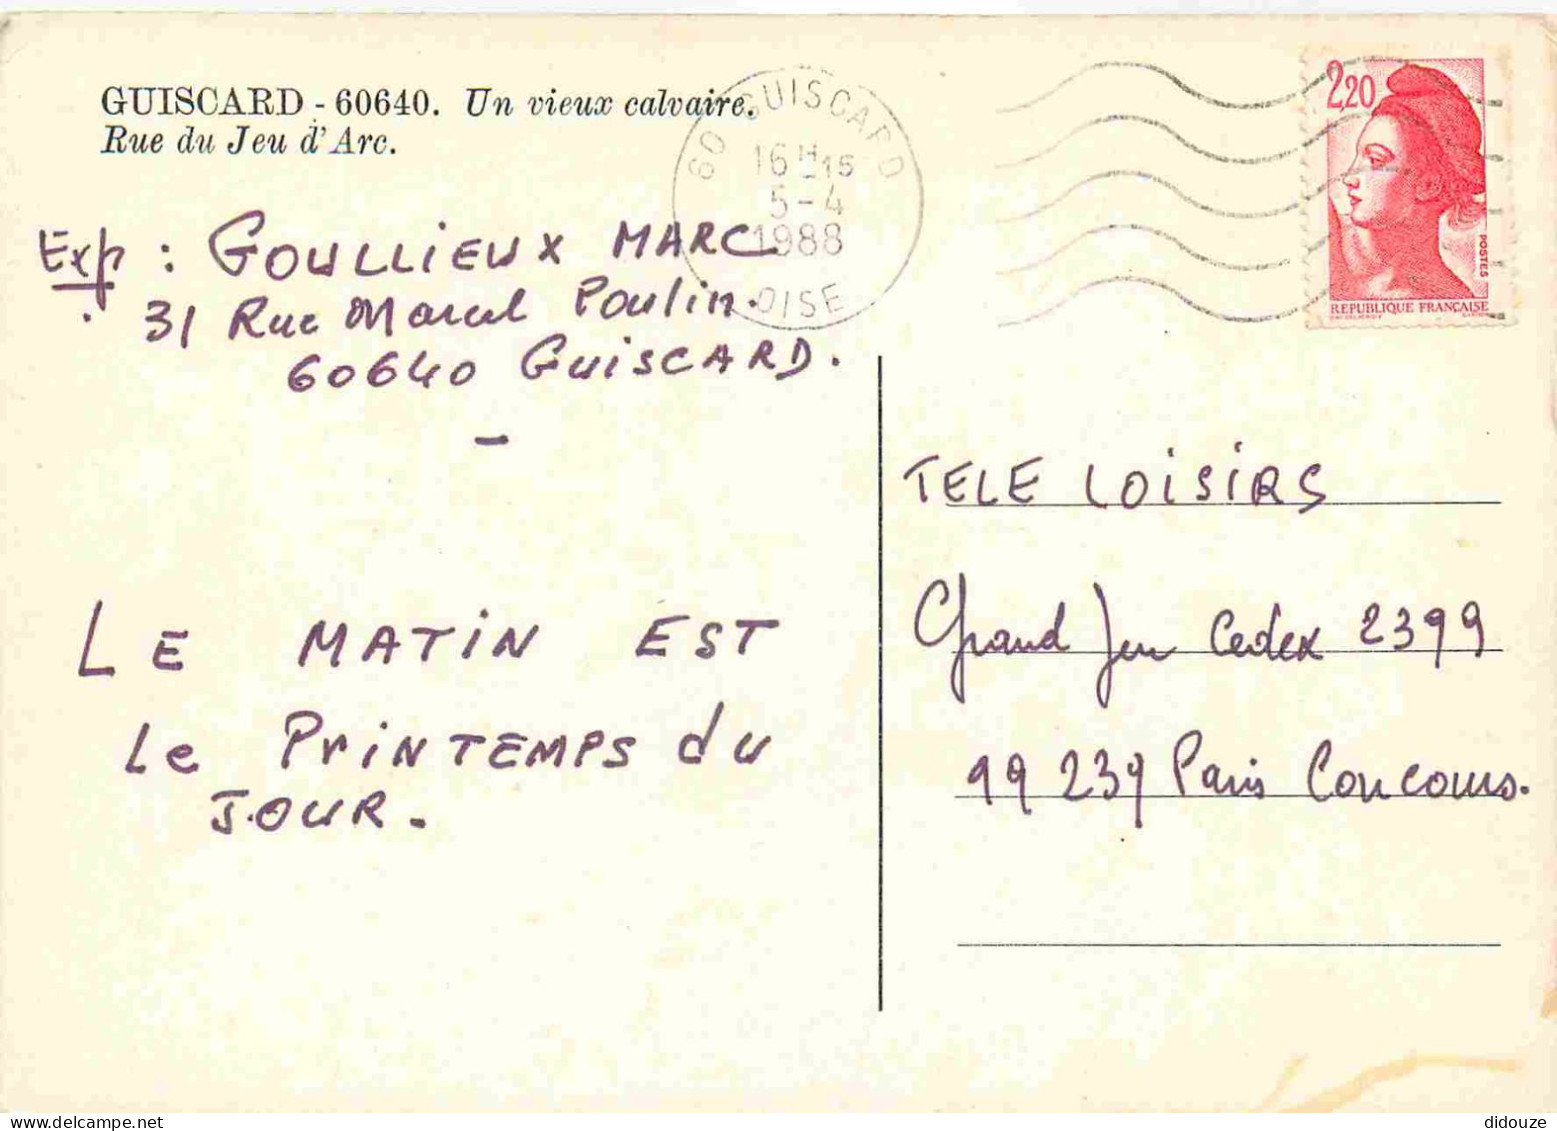 GUISCARD - 60640. Un vieux calvaire.
Rue du Jeu d'Arc.
60 GUISCARD
16 H 15
5-4
1988
OISE
2,20
POSTES
REPUBLIQUE FRANÇAISE
Exp : GOULLIEUX MARC
31 Rue Marcel Poulin.
60640 GUISCARD.
-
LE MATIN EST
Le PRINTEMPS du
JOUR.
TELE LOISIRS
Grand Jeu Cedex 2399
99 239 Paris Concours.
didouze